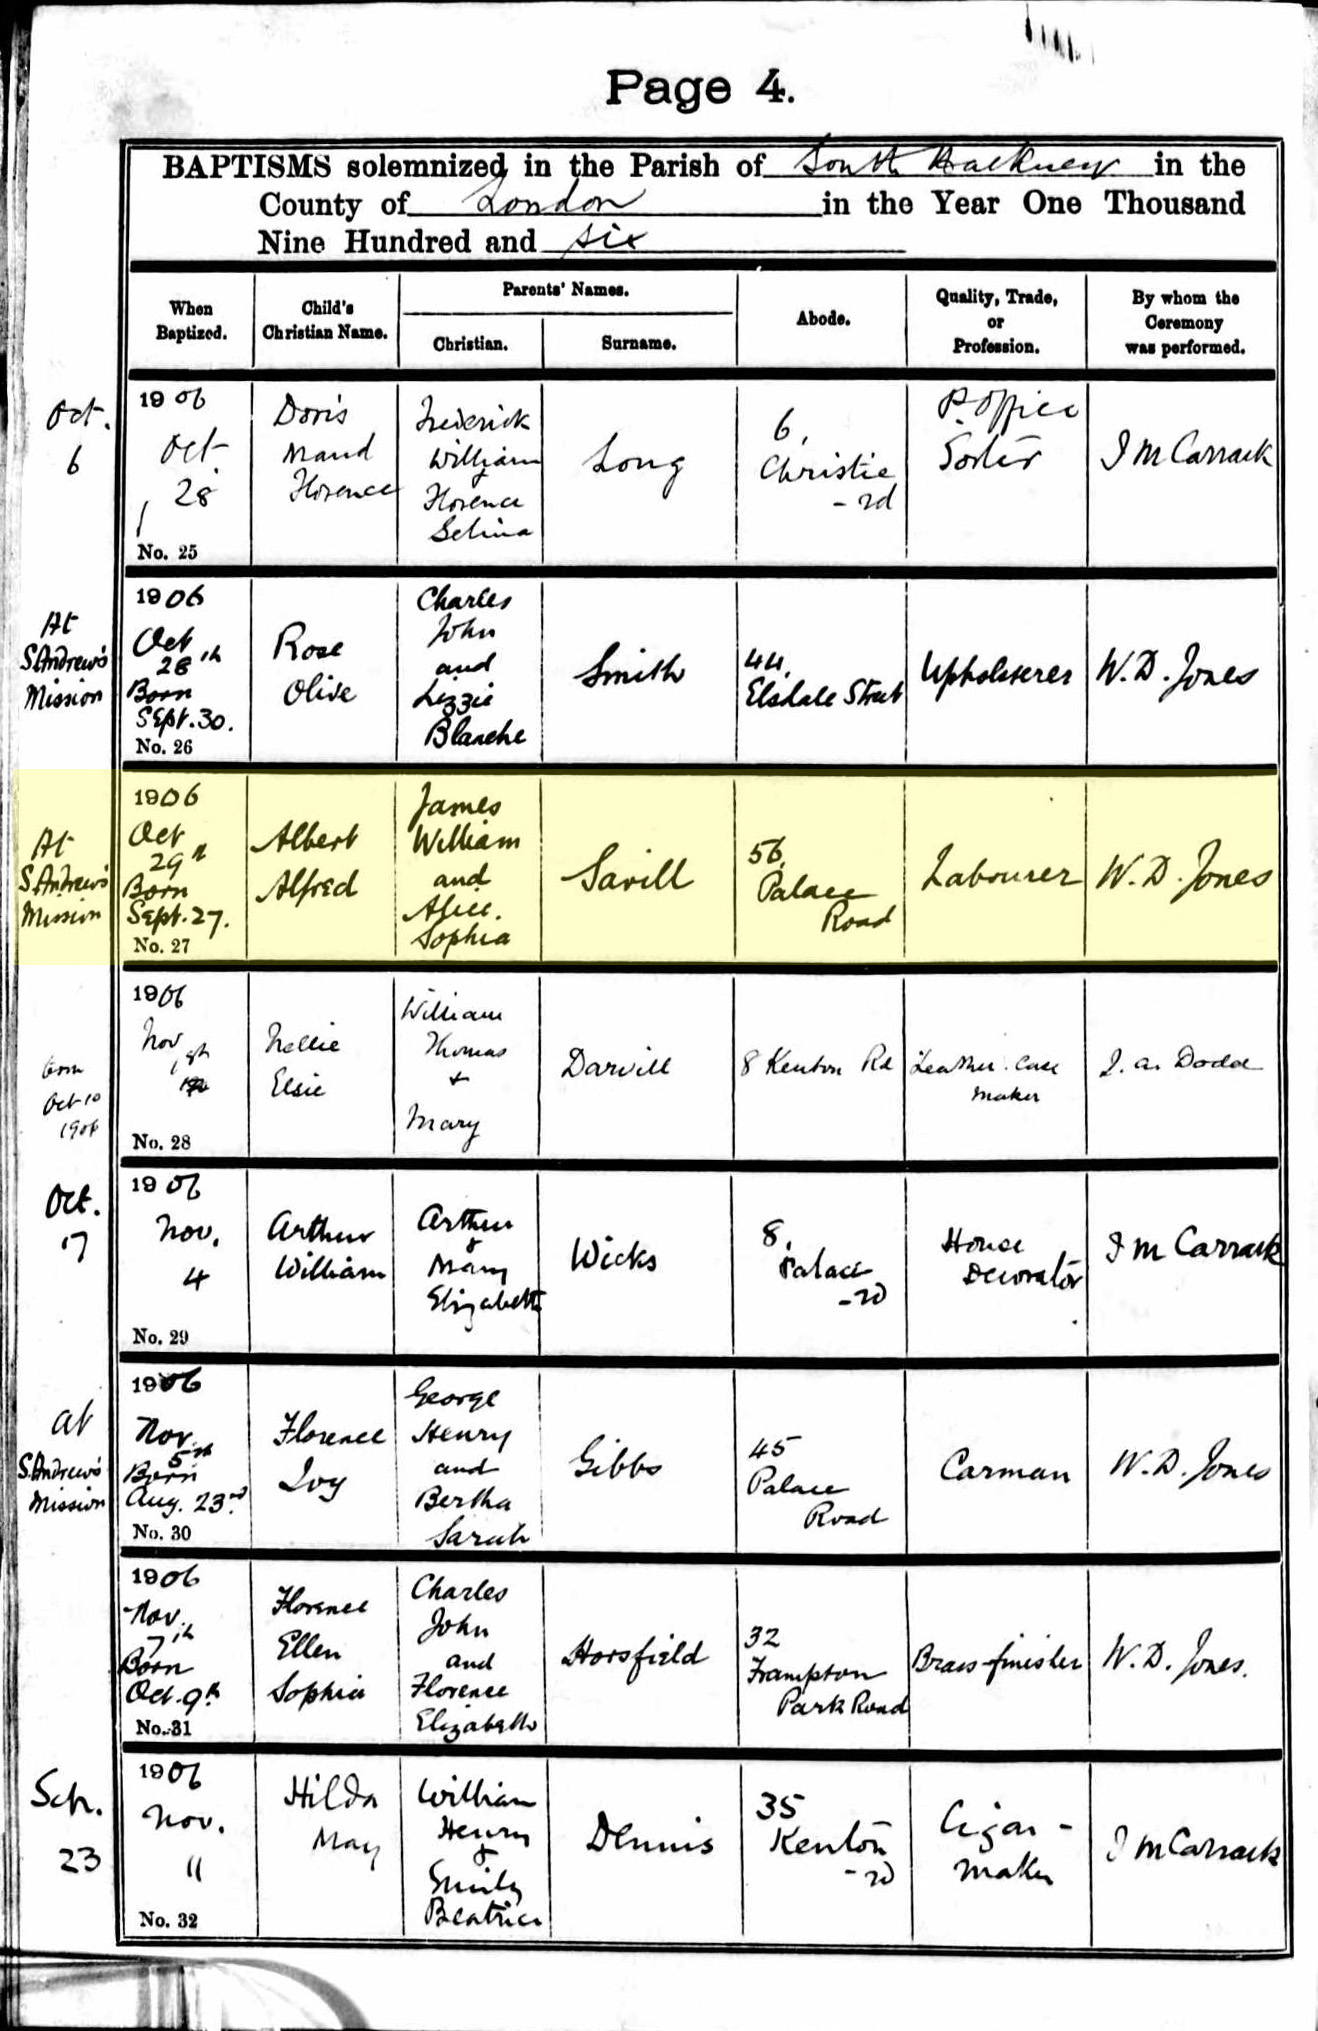 Page 4.
BAPTISMS solemnized in the Parish of South Hackney in the
County of London in the Year One Thousand
Nine Hundred and six
When Baptized.
Child's Christian Name.
Parents' Names.
Christian.
Surname.
Abode.
Quality, Trade, or Profession.
By whom the Ceremony was performed.
Oct.
6
1906
Oct
28
No. 25
Doris
Maud
Florence
Frederick
William
&
Florence
Selina
Long
6,
Christie
- rd
P. Office
Sorter
J M Carrack
At
S. Andrew's
Mission
1906
Oct
28th
Born
Sept. 30.
No. 26
Rose
Olive
Charles
John
and
Lizzie
Blanche
Smith
44,
Elsdale Street
Upholsterer
W. D. Jones
At
S. Andrew's
Mission
1906
Oct
29th
Born
Sept. 27.
No. 27
Albert
Alfred
James
William
and
Alice.
Sophia
Savill
56,
Palace
Road
Labourer
W. D. Jones
born
Oct 10
1906
1906
Nov
18th
No. 28
Nellie
Elsie
William
Thomas
+
Mary
Darvill
8 Kenton Rd
Leather Case
Maker
J. A. Dodd
Oct.
17
1906
Nov.
4
No. 29
Arthur
William
Arthur
&
Mary
Elizabeth
Wicks
8,
Palace
- rd
House
Decorator
J M Carrack
At
S. Andrew's
Mission
1906
Nov
5th
Born
Aug. 23rd.
No. 30
Florence
Ivy
George
Henry
and
Bertha
Sarah
Gibbs
45
Palace
Road
Carman
W. D. Jones
1906
Nov.
7th
Born
Oct. 9th
No. 31
Florence
Ellen
Sophia
Charles
John
and
Florence
Elizabeth
Horsfield
32
Frampton
Park Road
Brass-finisher
W. D. Jones.
Sep.
23
1906
Nov.
11
No. 32
Hilda
May
William
Henry
&
Emily
Beatrice
Dennis
35
Kenton
- rd
Cigar -
maker
J M Carrack